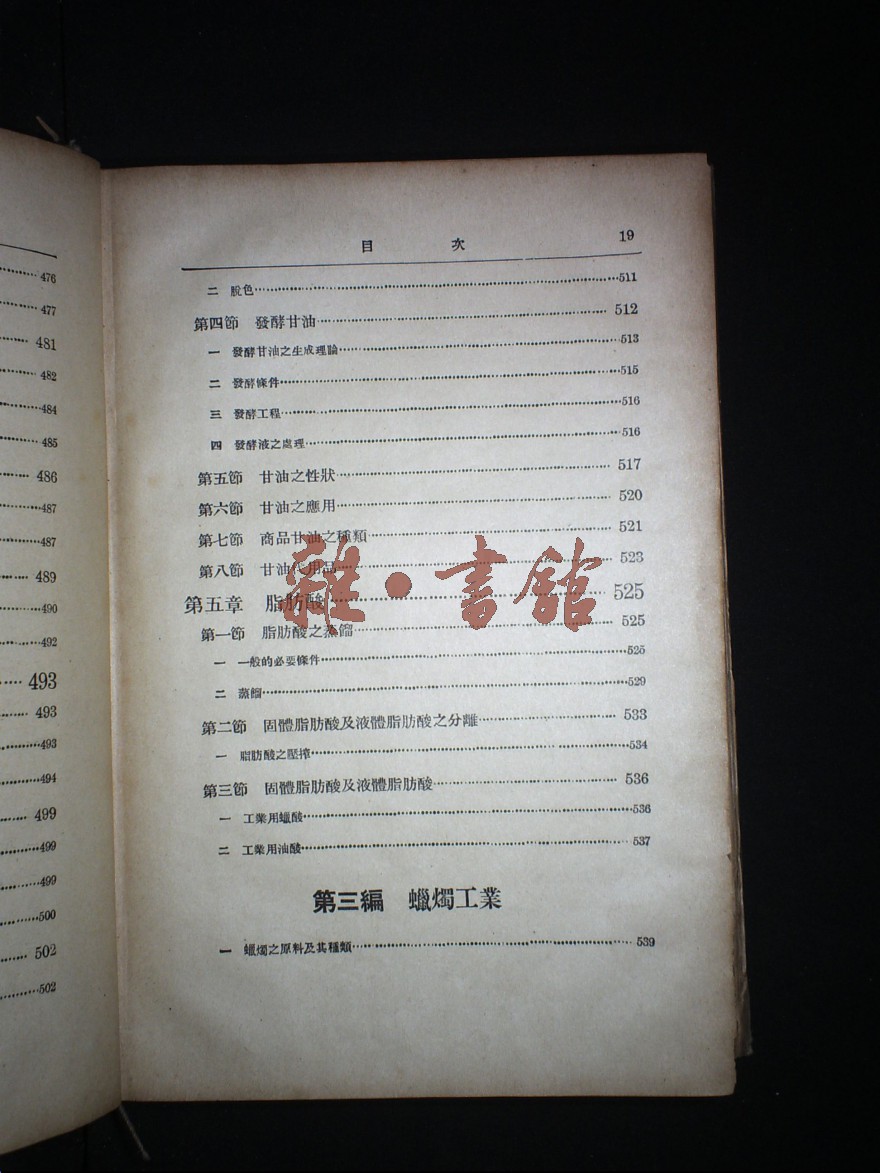 476
477
481
482
484
485
486
487
487
489
490
492
493
493
493
494
499
499
499
500
502
502
目 次 19
二 脫色 511
第四節 發酵甘油 512
一 發酵甘油之生成理論 513
二 發酵條件 515
三 發酵工程 516
四 發酵液之處理 516
第五節 甘油之性狀 517
第六節 甘油之應用 520
第七節 商品甘油之種類 521
第八節 甘油代用品 523
第五章 脂肪酸 525
第一節 脂肪酸之蒸餾 525
一 一般的必要條件 525
二 蒸餾 529
第二節 固體脂肪酸及液體脂肪酸之分離 533
一 脂肪酸之壓搾 534
第三節 固體脂肪酸及液體脂肪酸 536
一 工業用蠟酸 536
二 工業用油酸 537
第三編 蠟燭工業
一 蠟燭之原料及其種類 539
雜·書館